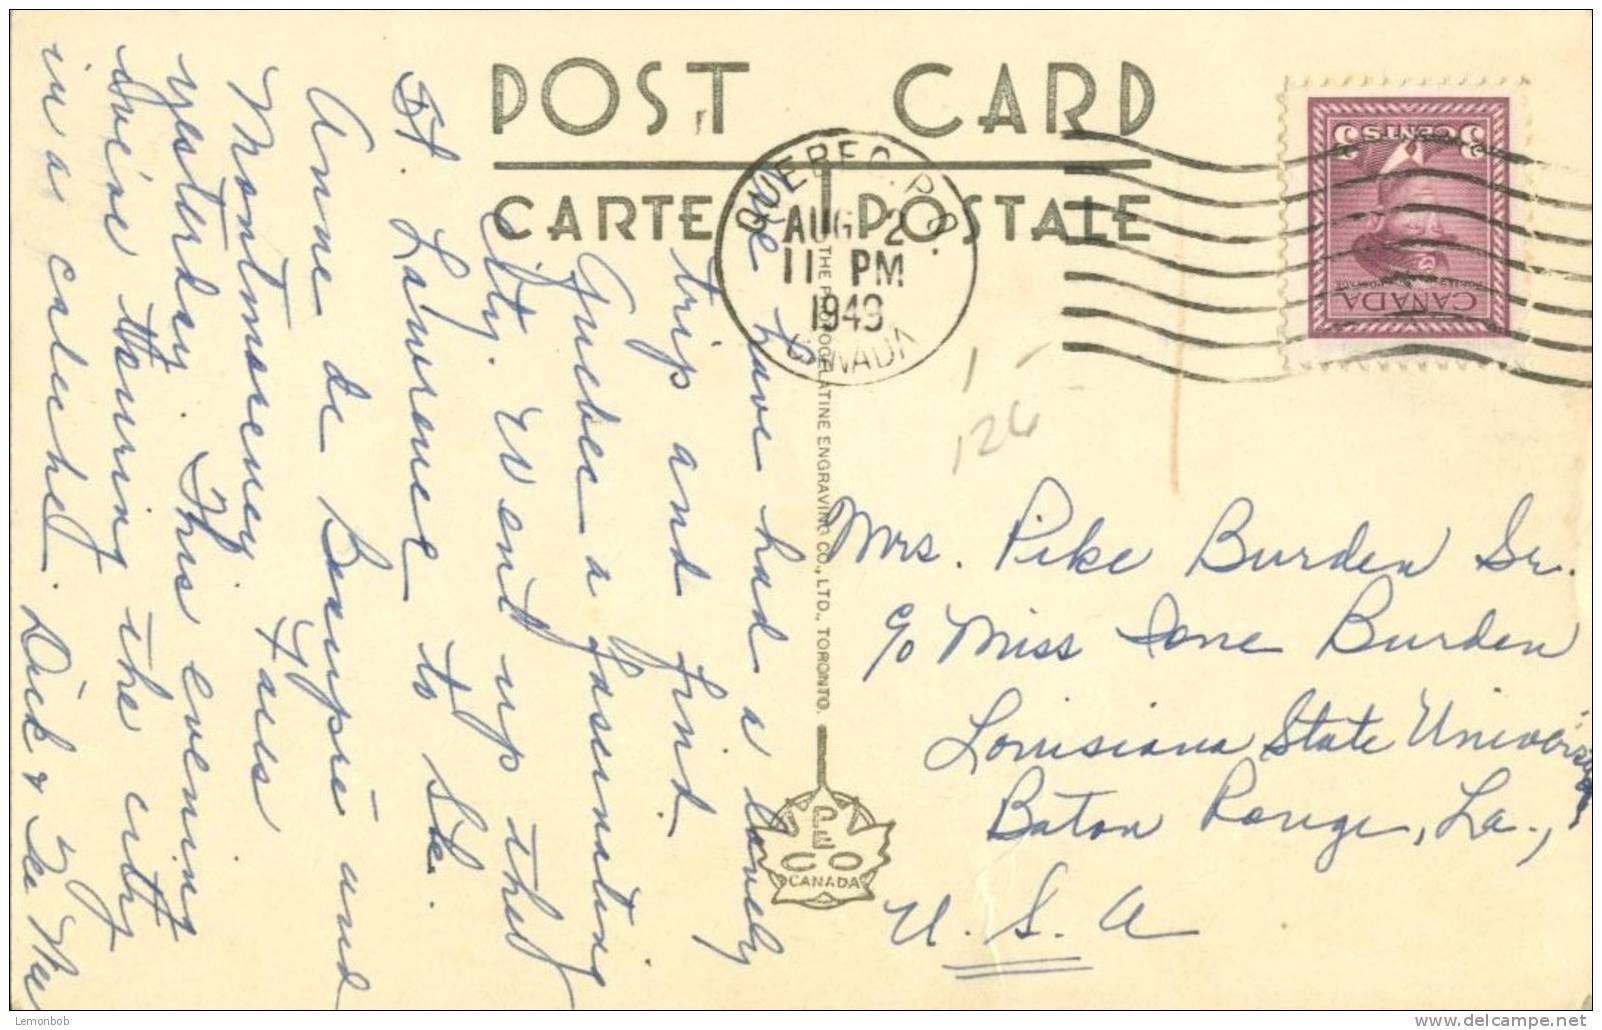 POST CARD
CARTE POSTALE
QUEBEC, P.Q.
AUG 2
11 PM
1949
CANADA
3 CENTS 3
CANADA
1-
126
THE PHOTOGELATINE ENGRAVING CO., LTD., TORONTO.
PECO
CANADA
We have had a lovely
trip and find
Quebec a fascinating
city. Went up the
St. Lawrence to Ste.
Anne de Beaupré and
Montmorency Falls
yesterday. This evening
we're touring the city
in a caleche.
Dick &
Mrs. Pike Burden Sr.
c/o Miss Ione Burden
Louisiana State University
Baton Rouge, La.,
U.S.A
Lemonbob
delcampe.net